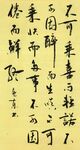 不可乘喜而輕諾不
可因醉而生嗔不可
乘快而多事不可因
倦而鮮終